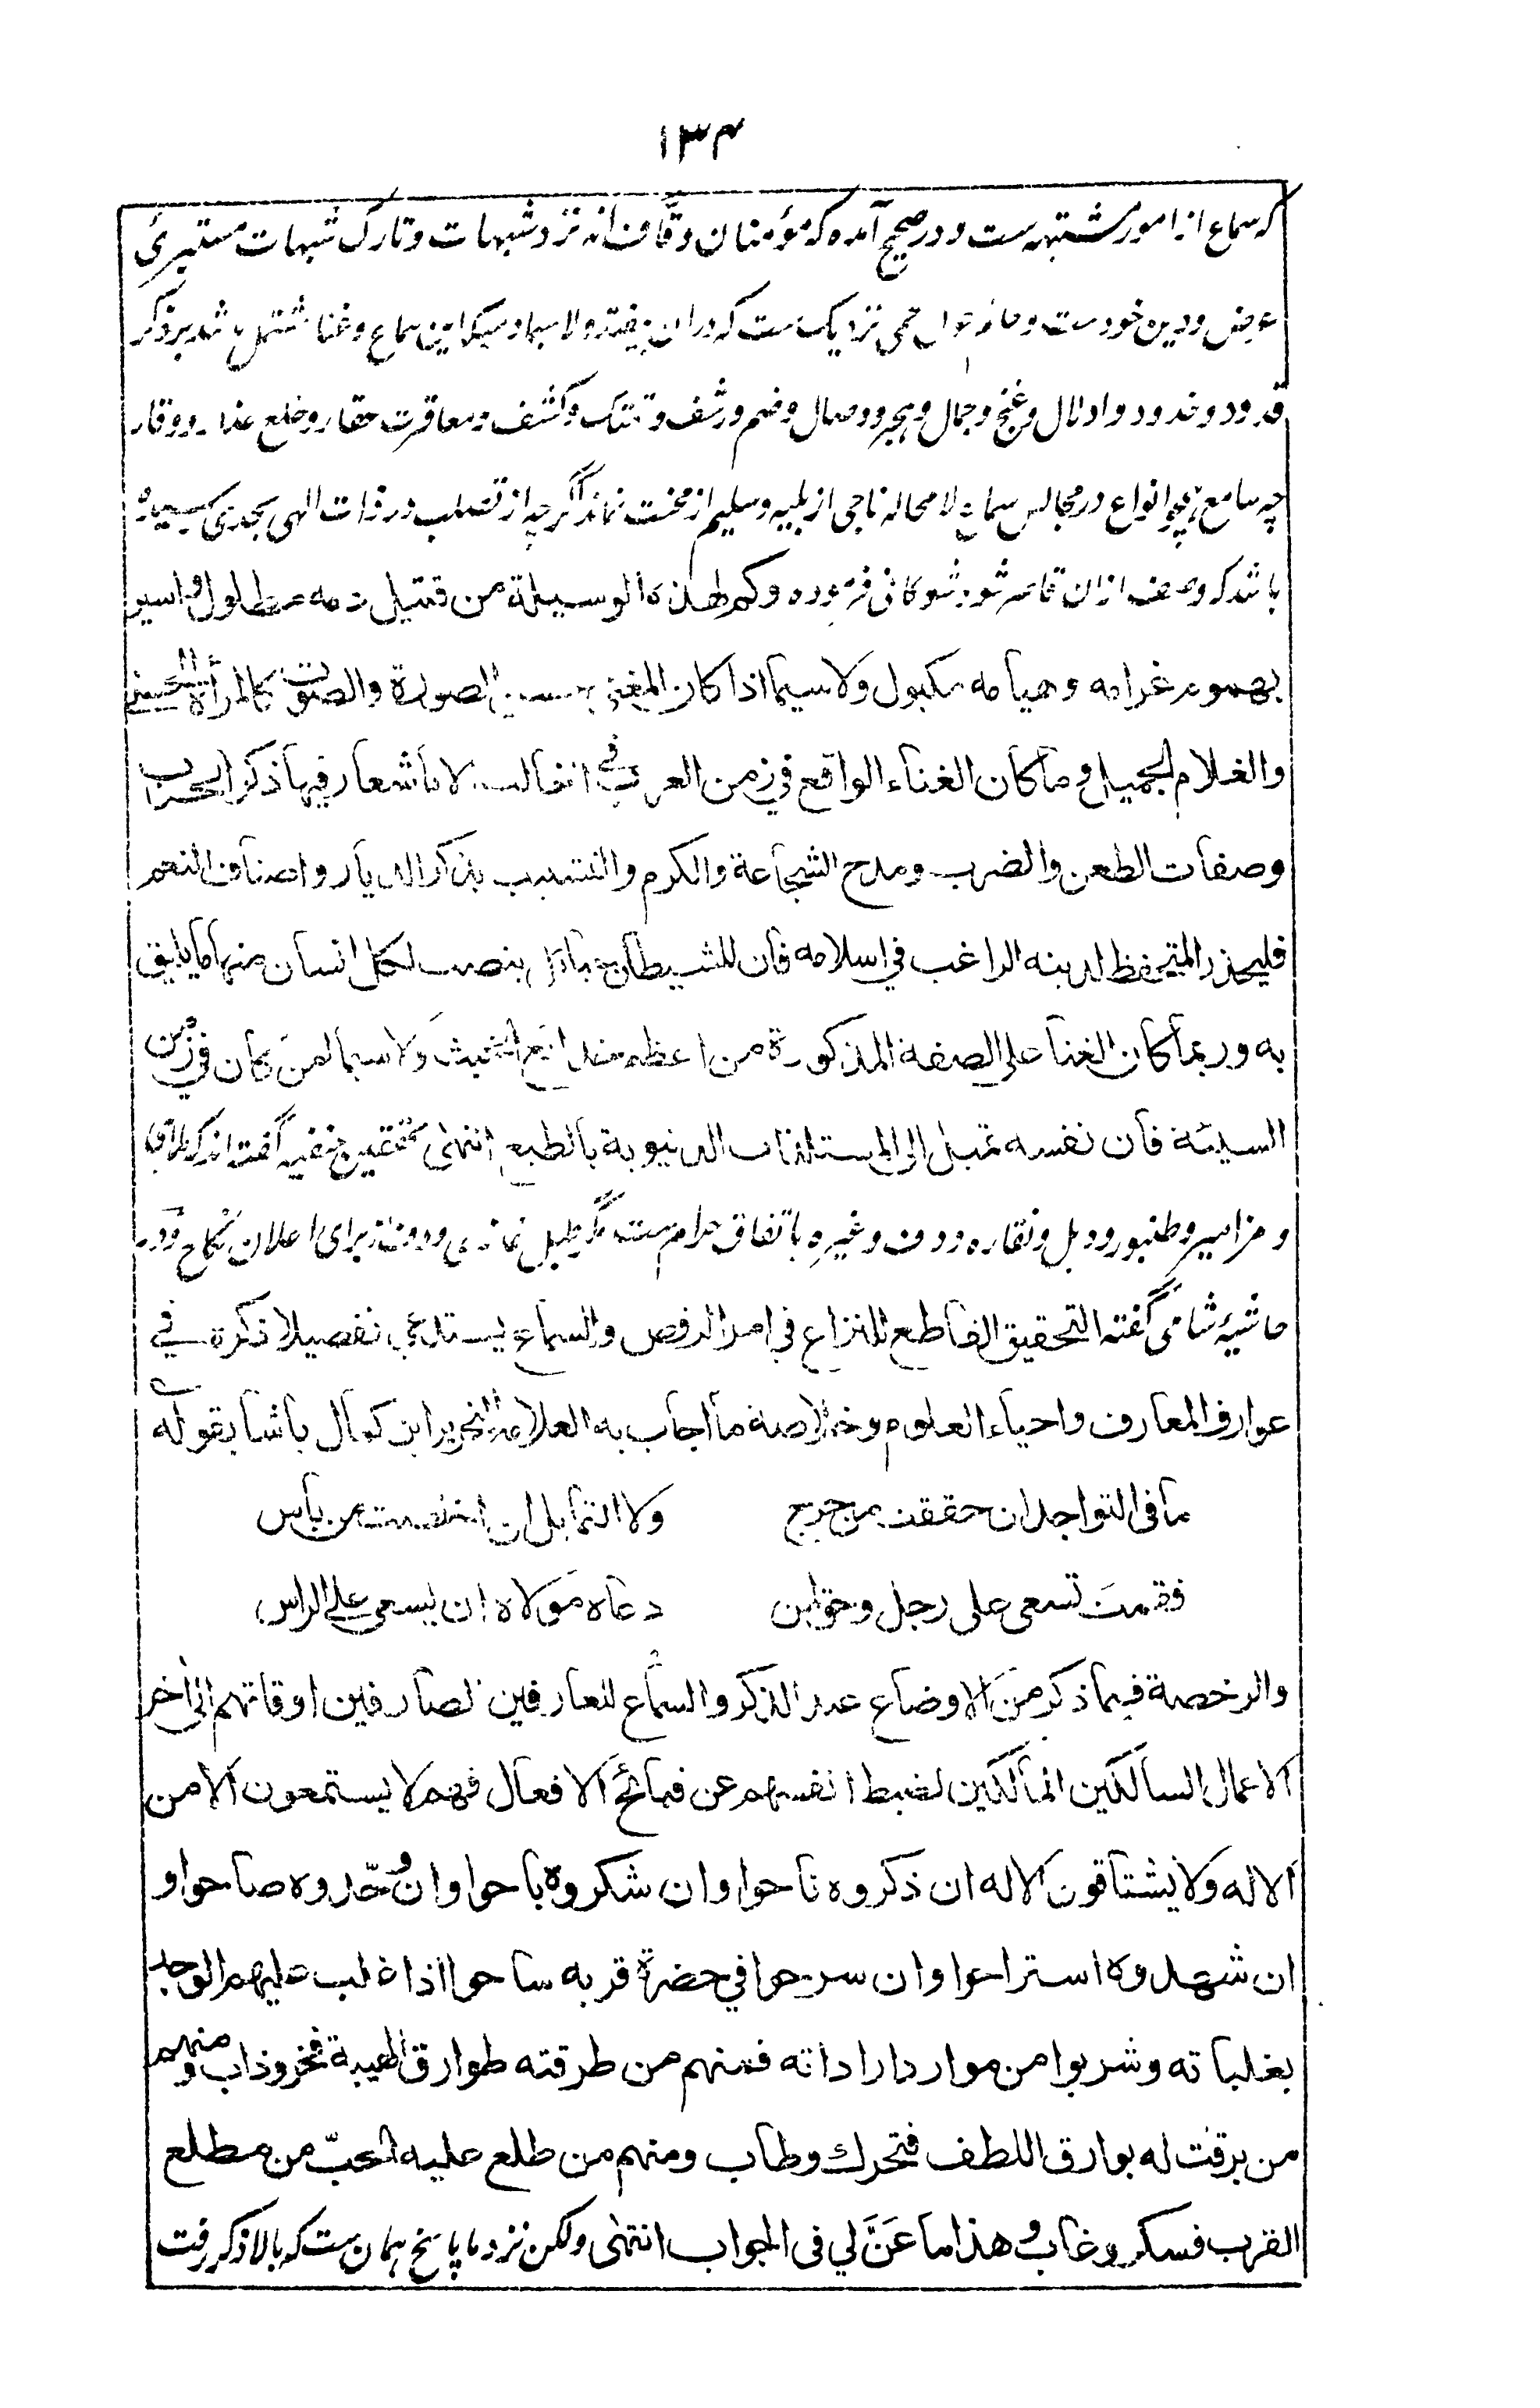 ۱۳۴
که سماع از امور مشتبه ست و در صحیح آمده که مؤمنان وقّاف اند نزد شبهات و تارک شبهات مستبرئ
عرض و دین خودست و حائم حول حمی نزدیک ست که دران بیفتد ولا سیما دسیکه این سماع و غنا مشتمل باشد بر ذکر
قدود و خدود و ادلال و غنج و جمال و هجر و وصال و ضم و رشف و تهتک و کشف و معاقرت عقار و خلع عذار و وقار
چه سامع این انواع در مجالس سماع لا محاله ناجی از بلیه و سلیم از محنت نماند اگرچه از تصلب در ذات الهی بحدی رسیده
باشد که وصف ازان قاصر شود شوکانی فرموده وکم لهذه الوسیلة من قتیل دمه مطلول واسیر
بهموم غرامه وهیامه مکبول ولا سیما اذا کان المغنی حسن الصورة والصوت کالمرأة الحسنی
والغلام الجمیل وما کان الغناء الواقع فی زمن العرب فی الغالب الا باشعار فیها ذکر الحرب
وصفات الطعن والضرب ومدح الشجاعة والکرم والتشبیب بذکر الدیار واصناف النعم
فلیحذر المتحفظ لدینه الراغب فی اسلامه فان للشیطان حبائل ینصب لکل انسان منها ما یلیق
به وربما کان الغنا علی الصفة المذکورة من اعظم خدائع الخبیث ولا سیما لمن کان فی زمن
السیئة فان نفسه تمیل الی المستلذات الدنیویة بالطبع انتهی محققین حنفیه گفته اند که ملاهی
و مزامیر و طنبور و دهل و نقاره و دف و غیره باتفاق حرام ست مگر طبل غازی و دف برای اعلان نکاح و در
حاشیۀ شامی گفته التحقیق القاطع للنزاع فی امر الرقص والسماع یستدعی تفصیلا ذکره فی
عوارف المعارف واحیاء العلوم وخلاصته ما اجاب به العلامة النحریر ابن کمال باشا بقوله
ما فی التواجد ان حققت من حرج ولا التمایل ان اخلصت من باس
فقمت تسعی علی رجل وحق لمن دعاه مولاه ان یسعی علی الراس
والرخصة فیما ذکر من الاوضاع عند الذکر والسماع للعارفین الصارفین اوقاتهم الی اخر
الاعمال السالکین المالکین لضبط انفسهم عن قبائح الافعال فهم لا یستمعون الا من
الاله ولا یشتاقون الا له ان ذکروه ناحوا وان شکروه باحوا وان وحّدوه صاحوا و
ان شهدوه استراحوا وان سرحوا فی حضرة قربه ساحوا اذا غلب علیهم الوجد
بغلباته وشربوا من موارد اراداته فمنهم من طرقته طوارق الهیبة فخر وذاب ومنهم
من برقت له بوارق اللطف فتحرك وطاب ومنهم من طلع علیه الحبّ من مطلع
القرب فسکر وغاب وهذا ما عَنَّ لی فی الجواب انتهی ولکن نزد ما پاسخ همان ست که بالا ذکر رفت